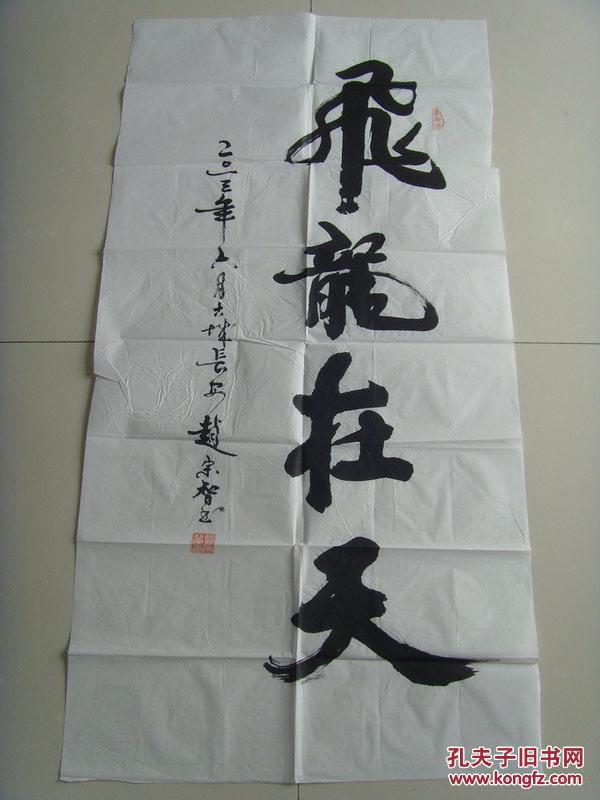 飛龍在天
二〇一三年六月古城長安趙宗智书
孔夫子旧书网
www.kongfz.com